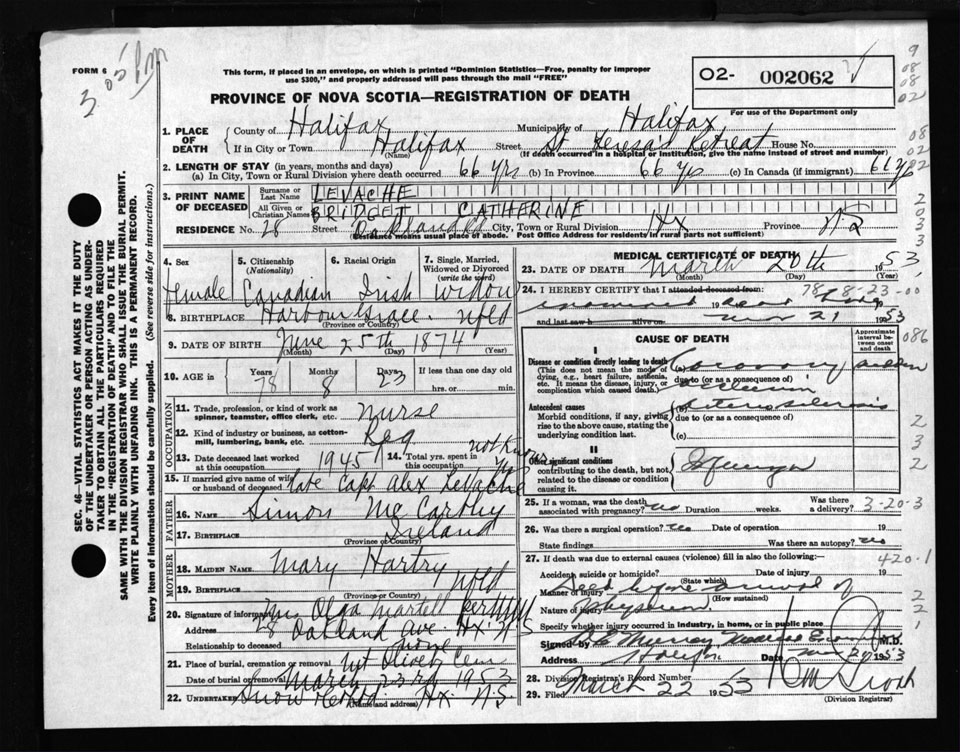 FORM 6
3
This form, if placed in an envelope, on which is printed "Dominion Statistics—Free, penalty for improper
use $300," and properly addressed will pass through the mail "FREE"
O2- 002062
For use of the Department only
PROVINCE OF NOVA SCOTIA—REGISTRATION OF DEATH
1. PLACE OF DEATH { County of Halifax Municipality of Halifax
If in City or Town Halifax (Name) Street St Teresa's Retreat House No.
(If death occurred in a hospital or institution, give the name instead of street and number)
2. LENGTH OF STAY (in years, months and days)
(a) In City, Town or Rural Division where death occurred 66 yrs (b) In Province 66 yrs (c) In Canada (if immigrant) 66 yrs
3. PRINT NAME OF DECEASED { Surname or Last Name LEVACHE
All Given or Christian Names BRIDGET CATHERINE
RESIDENCE No. 28 Street Oakland Rd City, Town or Rural Division Hx Province NS
(Residence means usual place of abode. Post Office Address for residents in rural parts not sufficient)
4. Sex
female
5. Citizenship (Nationality)
Canadian
6. Racial Origin
Irish
7. Single, Married, Widowed or Divorced (write the word)
Widow
8. BIRTHPLACE Harbour Grace. Nfld
(Province or Country)
9. DATE OF BIRTH June 25th 1874
(Month) (Day) (Year)
10. AGE in { Years 78 Months 8 Days 23 If less than one day old
hrs. or min.
OCCUPATION
11. Trade, profession, or kind of work as spinner, teamster, office clerk, etc. Nurse
12. Kind of industry or business, as cotton-mill, lumbering, bank, etc. Reg
13. Date deceased last worked at this occupation 1945
14. Total yrs. spent in this occupation not known
15. If married give name of wife or husband of deceased late Capt Alex LeVache
FATHER
16. NAME Simon McCarthy
17. BIRTHPLACE Ireland
(Province or Country)
MOTHER
18. MAIDEN NAME Mary Hartry
19. BIRTHPLACE Nfld
(Province or Country)
20. Signature of informant Mrs Olga Martell
Address 28 Oakland Ave. Hx. N S
Relationship to deceased none
21. Place of burial, cremation or removal Mt Olivet Cem
Date of burial or removal March 23rd 1953
22. UNDERTAKER Snow Hx. N.S.
(Name and address)
MEDICAL CERTIFICATE OF DEATH
23. DATE OF DEATH March 20th 1953
(Month) (Day) (Year)
24. I HEREBY CERTIFY that I attended deceased from: 78-8-23-00
examined 19 dead body
and last saw h alive on Mar 21 1953
CAUSE OF DEATH
Approximate interval between onset and death
I
Disease or condition directly leading to death
(This does not mean the mode of dying, e.g., heart failure, asthenia, etc. It means the disease, injury, or complication which caused death.)
(a) Coronary sudden
due to (or as a consequence of)
Antecedent causes
Morbid conditions, if any, giving rise to the above cause, stating the underlying condition last.
(b) arteriosclerosis
due to (or as a consequence of)
(c)
II
Other significant conditions
contributing to the death, but not related to the disease or condition causing it.
25. If a woman, was the death associated with pregnancy? no Duration weeks. Was there a delivery? 3-20-3
26. Was there a surgical operation? no Date of operation 19
State findings Was there an autopsy? no
27. If death was due to external causes (violence) fill in also the following:— 420-1
Accident, suicide or homicide? (State which) Date of injury 19
Manner of injury Dead before arrival of
(How sustained)
Nature of injury physician
Specify whether injury occurred in industry, in home, or in public place
Signed by Murray Medical Examiner M.D.
Address Halifax Date Mar 21 1953
28. Division Registrar's Record Number
29. Filed March 22 1953
(Division Registrar)
SEC. 46—VITAL STATISTICS ACT MAKES IT THE DUTY
OF THE UNDERTAKER OR PERSON ACTING AS UNDER-
TAKER TO OBTAIN ALL THE PARTICULARS REQUIRED
IN THE "REGISTRATION OF DEATH" AND TO FILE THE
SAME WITH THE DIVISION REGISTRAR WHO SHALL ISSUE THE BURIAL PERMIT.
WRITE PLAINLY WITH UNFADING INK. THIS IS A PERMANENT RECORD.
Every item of information should be carefully supplied. (See reverse side for instructions.)
9
08
08
02
08
02
82
2
0
3
3
086
2
3
2
2
2
1